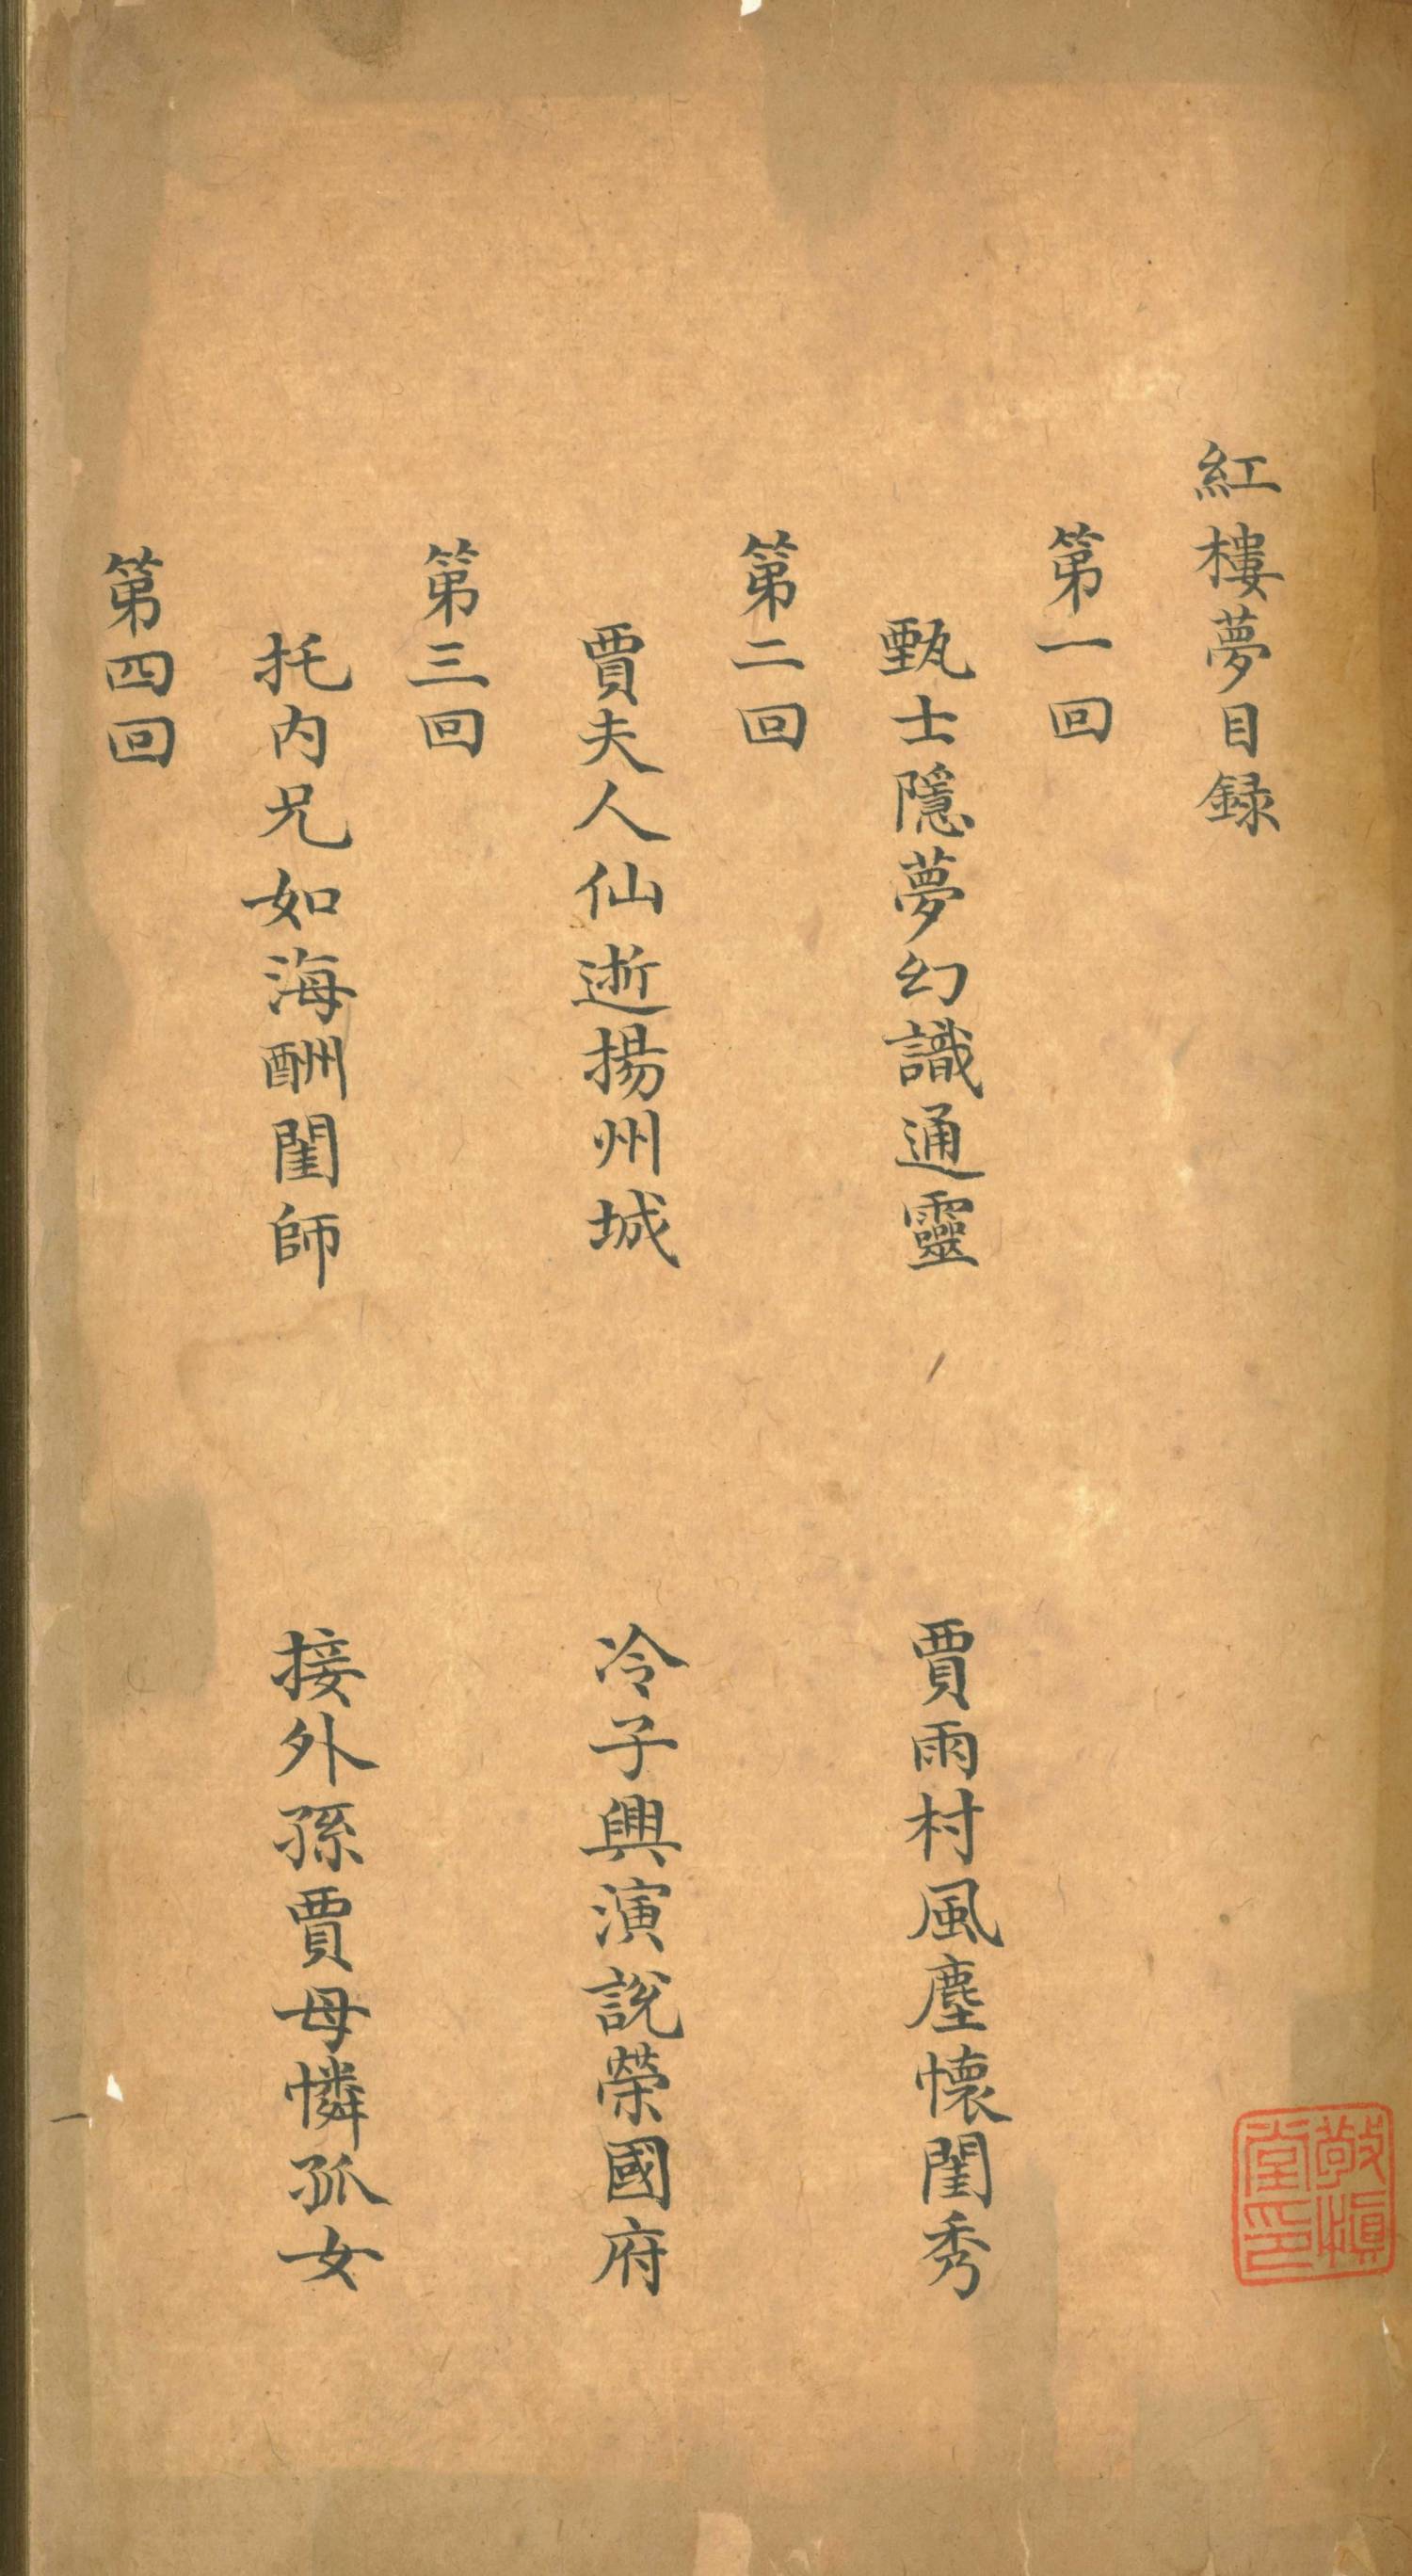 紅樓夢目録
第一回
甄士隱夢幻識通靈　賈雨村風塵懷閨秀
第二回
賈夫人仙逝揚州城　冷子興演說榮國府
第三回
托内兄如海酬閨師　接外孫賈母憐孤女
第四回
一
敬慎堂印